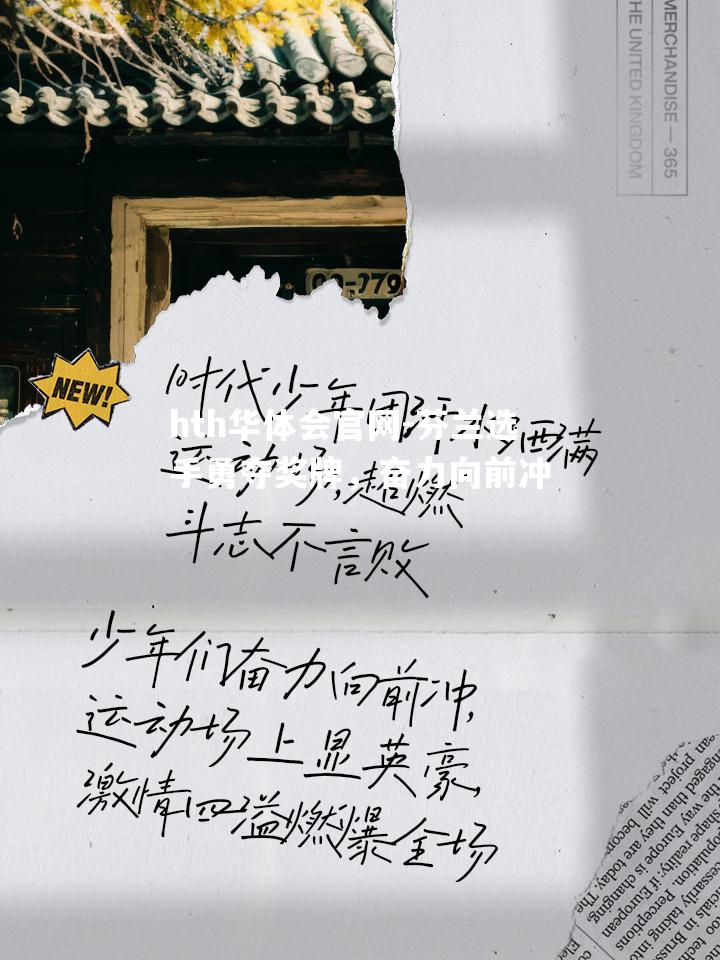 MERCHANDISE — 365
THE UNITED KINGDOM
NEW!
时代少年团
洒满
hth华体会官网-芬兰选
手勇夺奖牌，奋力向前冲
运动场,超燃
斗志不言败
少年们奋力向前冲,
运动场上显英豪,
激情四溢燃爆全场
an project will becom
ngaged than they are today. The
the way Europe is changing
shape reality: if European
opulation. Perception
cessarily taking in
icials in Bruss
oo techn